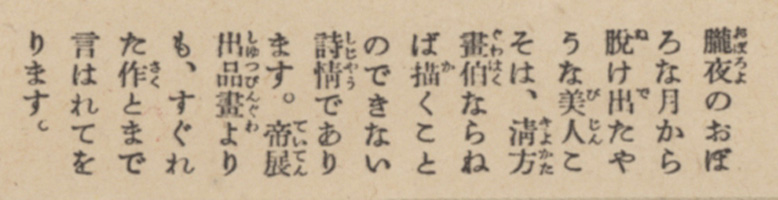 朧夜のおぼ
ろな月から
脫け出たや
うな美人こ
そは、淸方
畫伯ならね
ば描くこと
のできない
詩情であり
ます。帝展
出品畫より
も、すぐれ
た作とまで
言はれてを
ります。